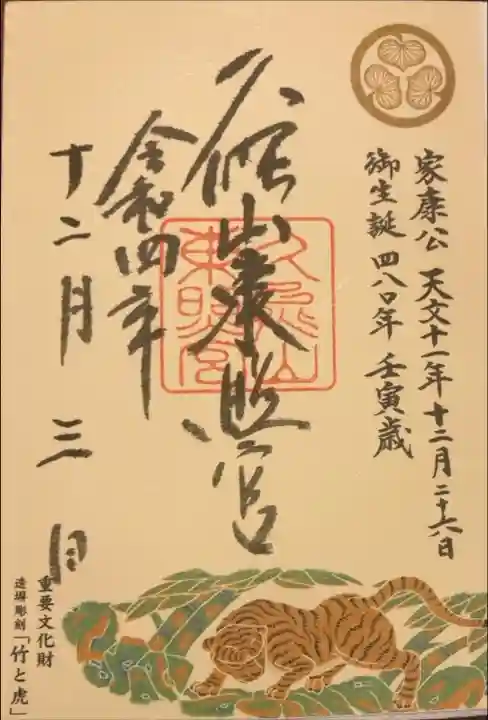 家康公 天文十一年十二月二十六日
御生誕 四八〇年 壬寅歳
久能山東照宮
久能山
東照宮
令和四年
十二月 三日
重要文化財
造塀彫刻「竹と虎」